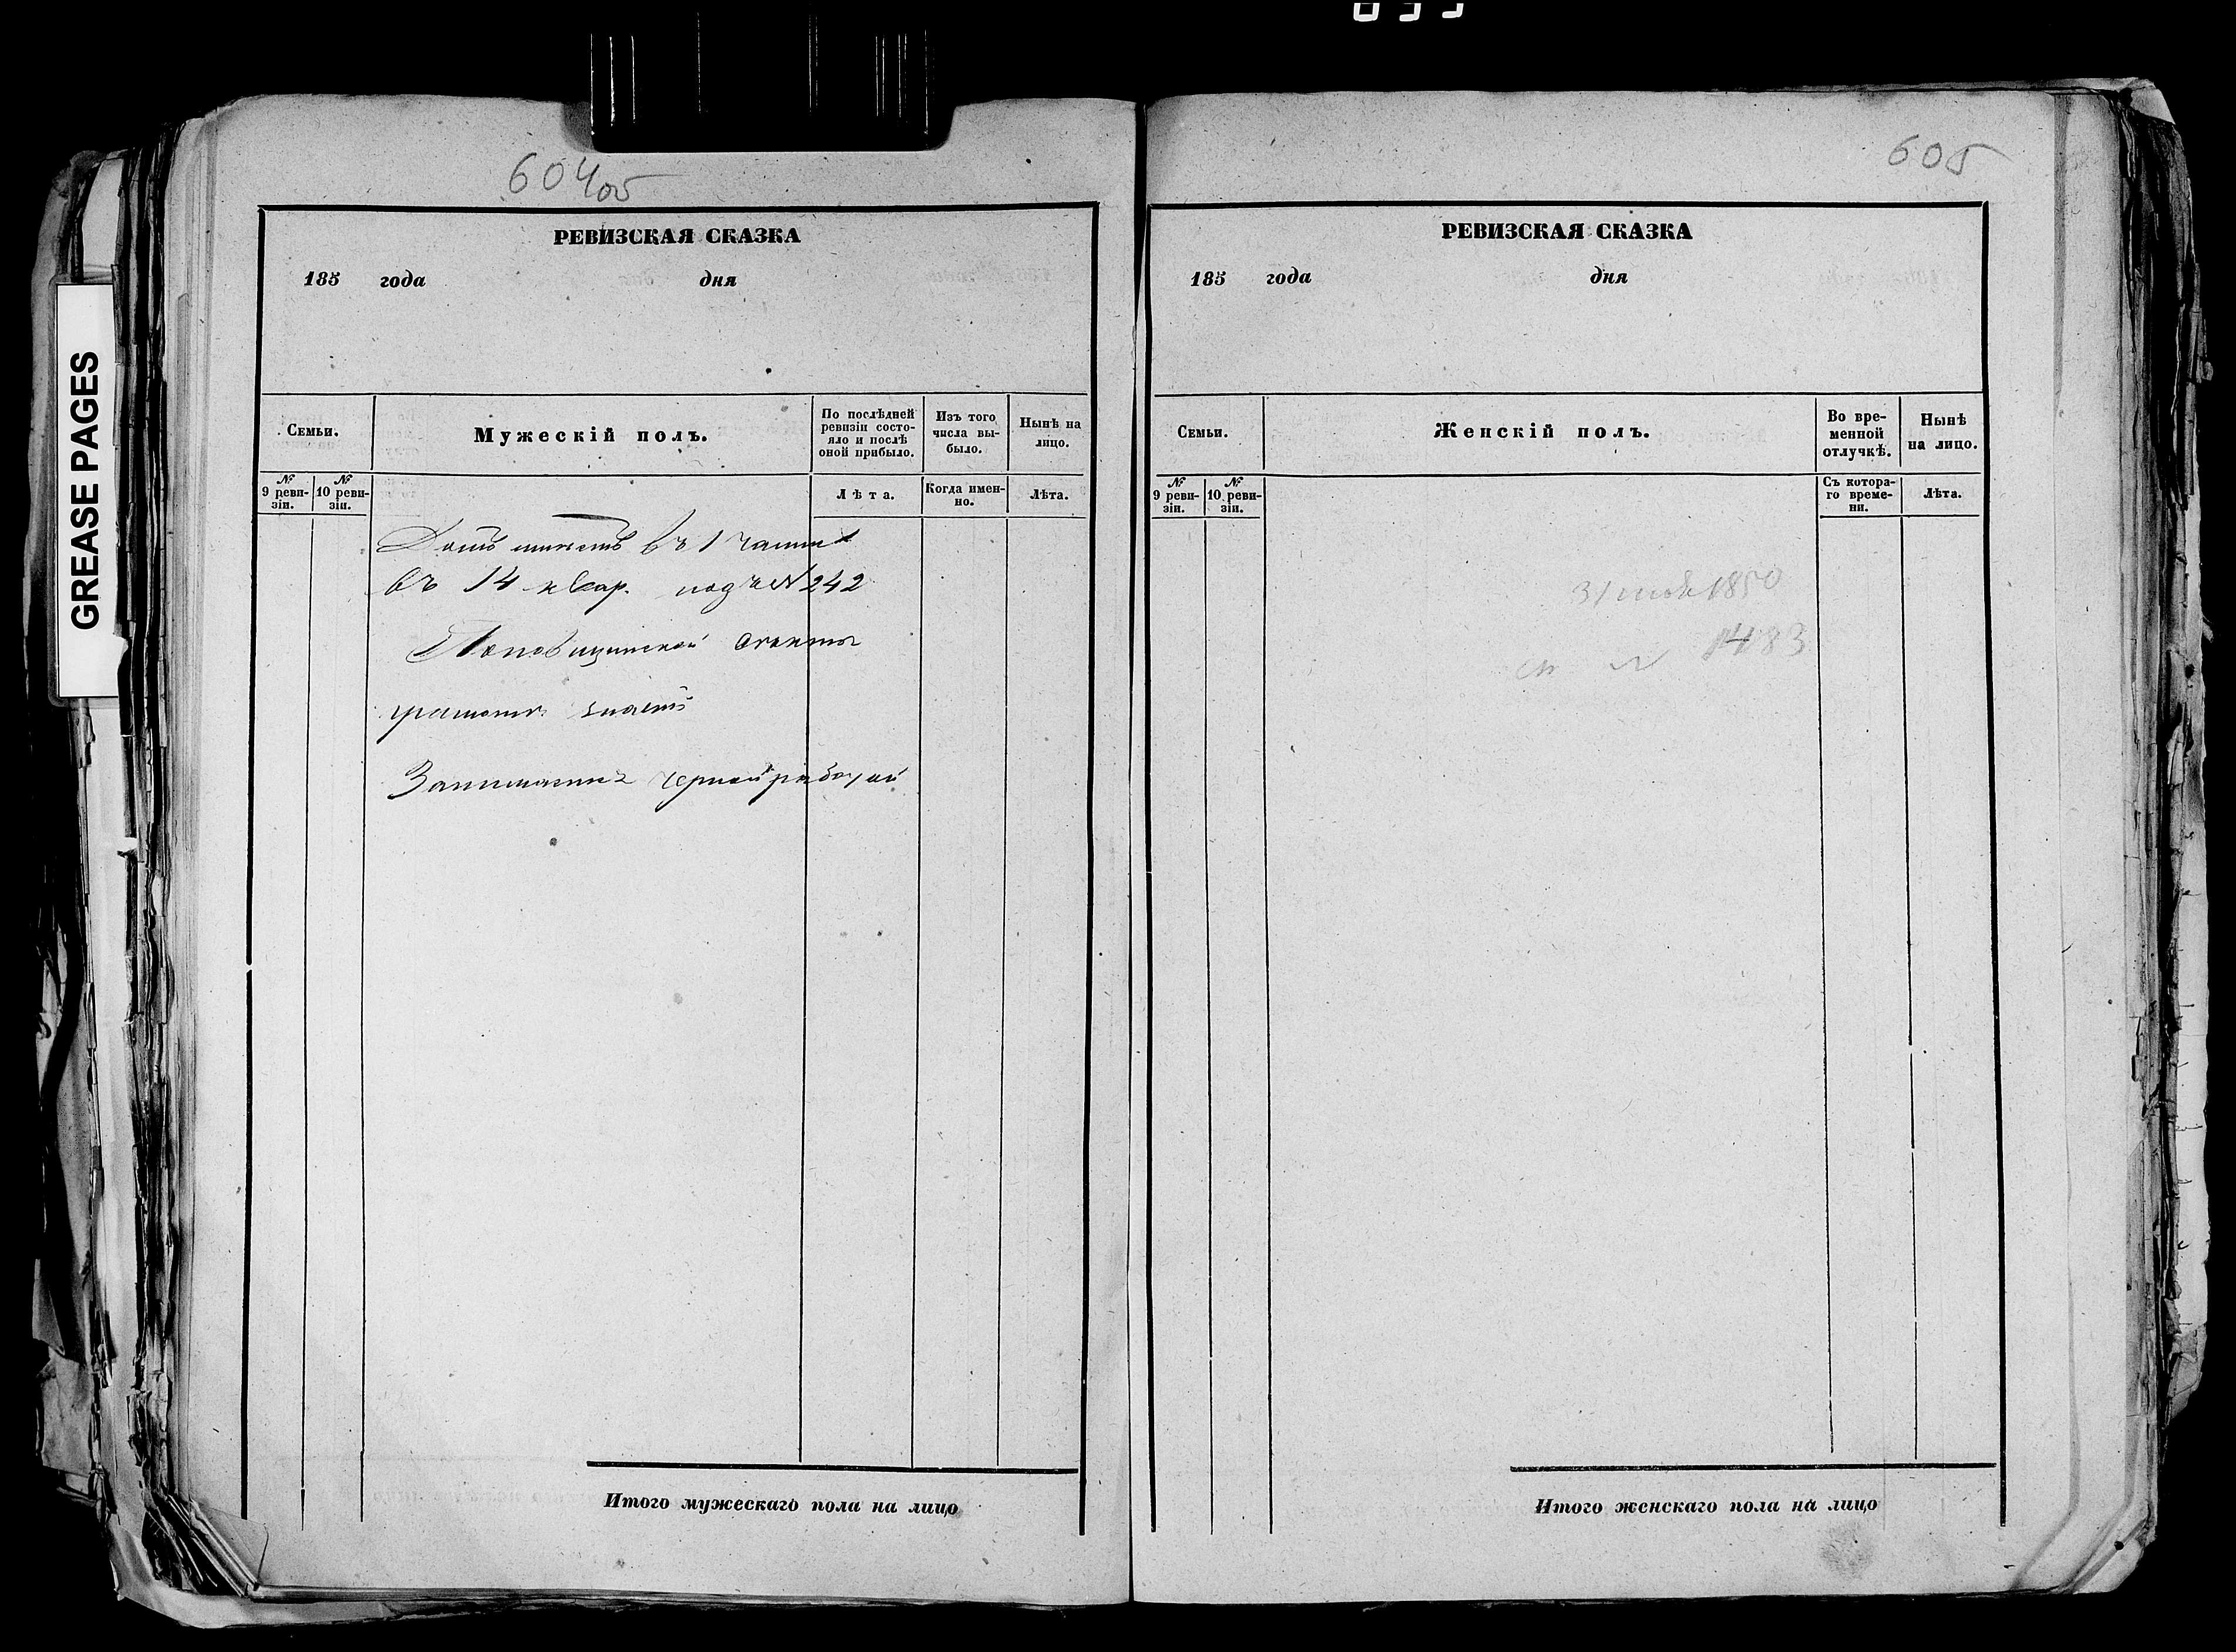 GREASE PAGES
604 об
РЕВИЗСКАЯ СКАЗКА
185 года дня
Семьи.
Мужескій полъ.
По послѣдней ревизіи состояло и послѣ оной прибыло.
Изъ того числа выбыло.
Нынѣ на лицо.
№ 9 ревизіи.
№ 10 ревизіи.
Лѣта.
Когда именно.
Лѣта.
Домъ имѣетъ въ 1 части
въ 14 квар. подъ № 242
грамоти знаетъ
Занимается черной работой
Итого мужескаго пола на лицо
605
РЕВИЗСКАЯ СКАЗКА
185 года дня
Семьи.
Женскій полъ.
Во временной отлучкѣ.
Нынѣ на лицо.
№ 9 ревизіи.
№ 10 ревизіи.
Съ котораго времени.
Лѣта.
31 1850
№ 1483
Итого женскаго пола на лицо